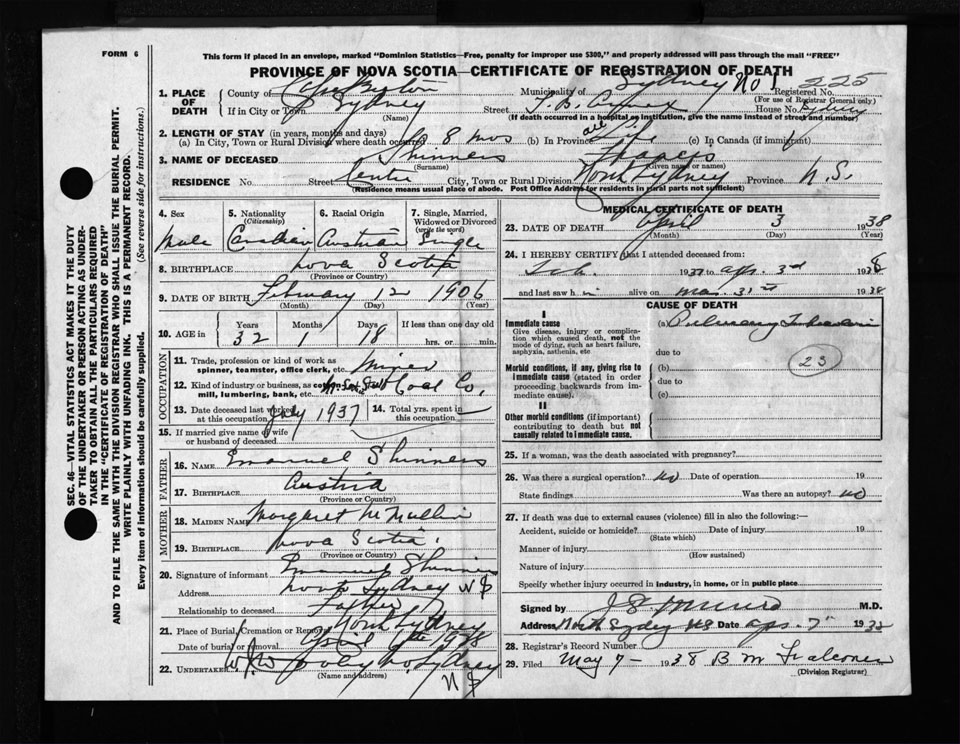 FORM 6
This form if placed in an envelope, marked "Dominion Statistics—Free, penalty for improper use $300," and properly addressed will pass through the mail "FREE"
PROVINCE OF NOVA SCOTIA—CERTIFICATE OF REGISTRATION OF DEATH
SEC. 46—VITAL STATISTICS ACT MAKES IT THE DUTY
OF THE UNDERTAKER OR PERSON ACTING AS UNDER-
TAKER TO OBTAIN ALL THE PARTICULARS REQUIRED
IN THE "CERTIFICATE OF REGISTRATION OF DEATH"
AND TO FILE THE SAME WITH THE DIVISION REGISTRAR WHO SHALL ISSUE THE BURIAL PERMIT.
WRITE PLAINLY WITH UNFADING INK. THIS IS A PERMANENT RECORD.
Every item of information should be carefully supplied. (See reverse side for instructions.)
1. PLACE OF DEATH County of Cape Breton Municipality of Sydney No 1 Registered No. 225
(For use of Registrar General only)
If in City or Town Sydney Street T. B. Annex House No. Sydney
(Name) (If death occurred in a hospital or institution, give the name instead of street and number)
2. LENGTH OF STAY (in years, months and days)
(a) In City, Town or Rural Division where death occurred 8 mos (b) In Province all life (c) In Canada (if immigrant)
3. NAME OF DECEASED Shinners Francis
(Surname) (Given name or names)
RESIDENCE No. Street Centre City, Town or Rural Division North Sydney Province N.S.
(Residence means usual place of abode. Post Office Address for residents in rural parts not sufficient)
4. Sex 5. Nationality 6. Racial Origin 7. Single, Married,
(Citizenship) Widowed or Divorced
(write the word)
Male Canadian Austrian Single
8. BIRTHPLACE Nova Scotia
(Province or Country)
9. DATE OF BIRTH February 12 1906
(Month) (Day) (Year)
10. AGE in Years Months Days If less than one day old
32 1 18 hrs. or min.
OCCUPATION
11. Trade, profession or kind of work as
spinner, teamster, office clerk, etc. Miner
12. Kind of industry or business, as cotton
mill, lumbering, bank, etc. Coal Co.
13. Date deceased last worked
at this occupation July 1937 14. Total yrs. spent in
this occupation
15. If married give name of wife
or husband of deceased
FATHER
16. NAME Emanuel Shinners
17. BIRTHPLACE Austria
(Province or Country)
MOTHER
18. MAIDEN NAME Margaret McMullin
19. BIRTHPLACE Nova Scotia.
(Province or Country)
20. Signature of informant Emanuel Shinners
Address North Sydney N S
Relationship to deceased Father
21. Place of Burial, Cremation or Removal North Sydney
Date of burial or removal April 1938
22. UNDERTAKER No. Sydney
(Name and address) N S
MEDICAL CERTIFICATE OF DEATH
23. DATE OF DEATH April 3 1938
(Month) (Day) (Year)
24. I HEREBY CERTIFY that I attended deceased from:
Feb. 1937 to Apr. 3rd 1938
and last saw h im alive on Mar. 31st 1938
CAUSE OF DEATH
I
Immediate cause
Give disease, injury or complica-
tion which caused death, not the
mode of dying, such as heart failure,
asphyxia, asthenia, etc
(a) Pulmonary Tuberculosis
due to
Morbid conditions, if any, giving rise to
immediate cause (stated in order
proceeding backwards from im-
mediate cause).
(b) 23
due to
(c)
II
Other morbid conditions (if important)
contributing to death but not
causally related to immediate cause.
25. If a woman, was the death associated with pregnancy?
26. Was there a surgical operation? No Date of operation 19
State findings Was there an autopsy? No
27. If death was due to external causes (violence) fill in also the following:—
Accident, suicide or homicide? Date of injury 19
(State which)
Manner of injury
(How sustained)
Nature of injury
Specify whether injury occurred in industry, in home, or in public place
Signed by J S Munro M.D.
Address North Sydney NS Date Apr. 7" 1938
28. Registrar's Record Number
29. Filed May 7- 1938 B M Falconer
(Division Registrar)